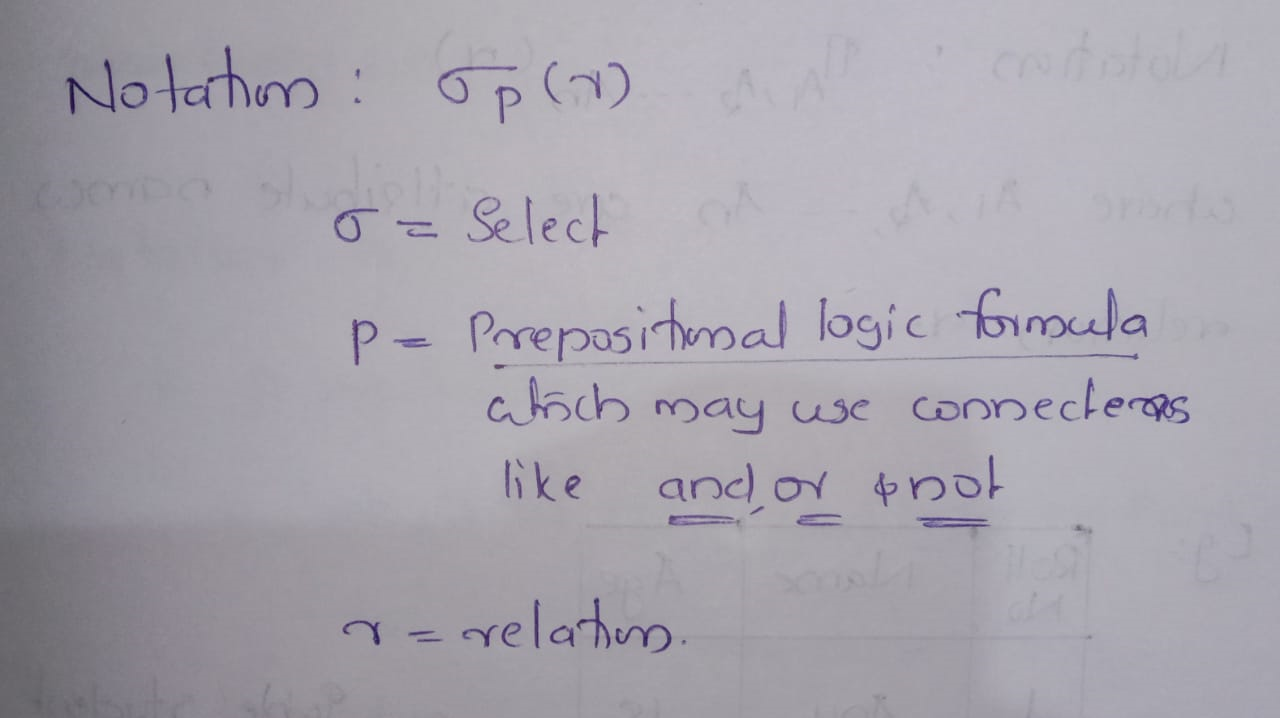 Notation : σp (r)
σ = Select
p = Prepositional logic formula
which may use connecters
like and, or & not
r = relation.